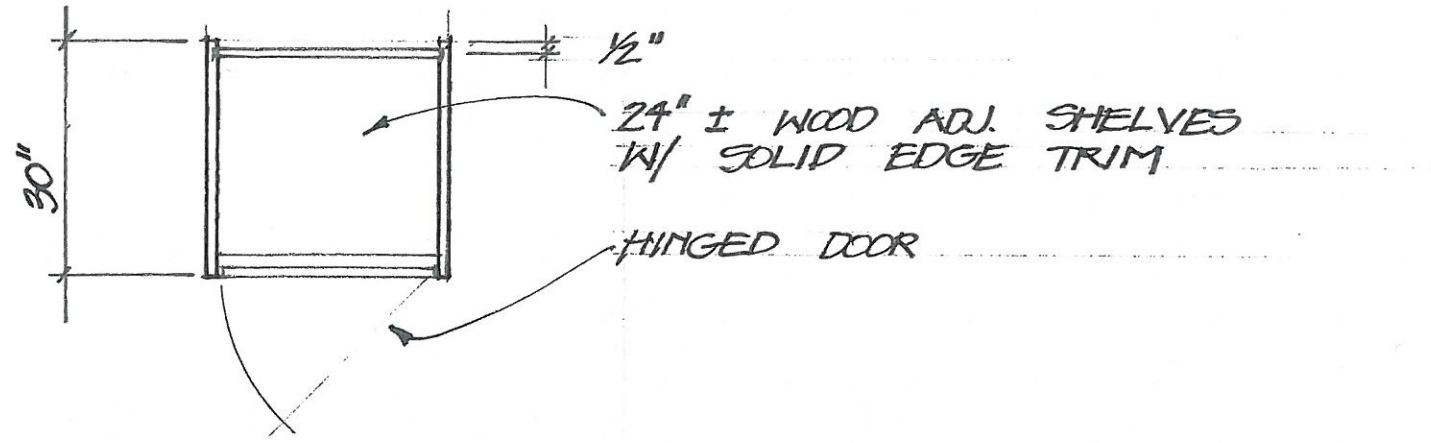 1/2"
24" ± WOOD ADJ. SHELVES
W/ SOLID EDGE TRIM
30"
HINGED DOOR